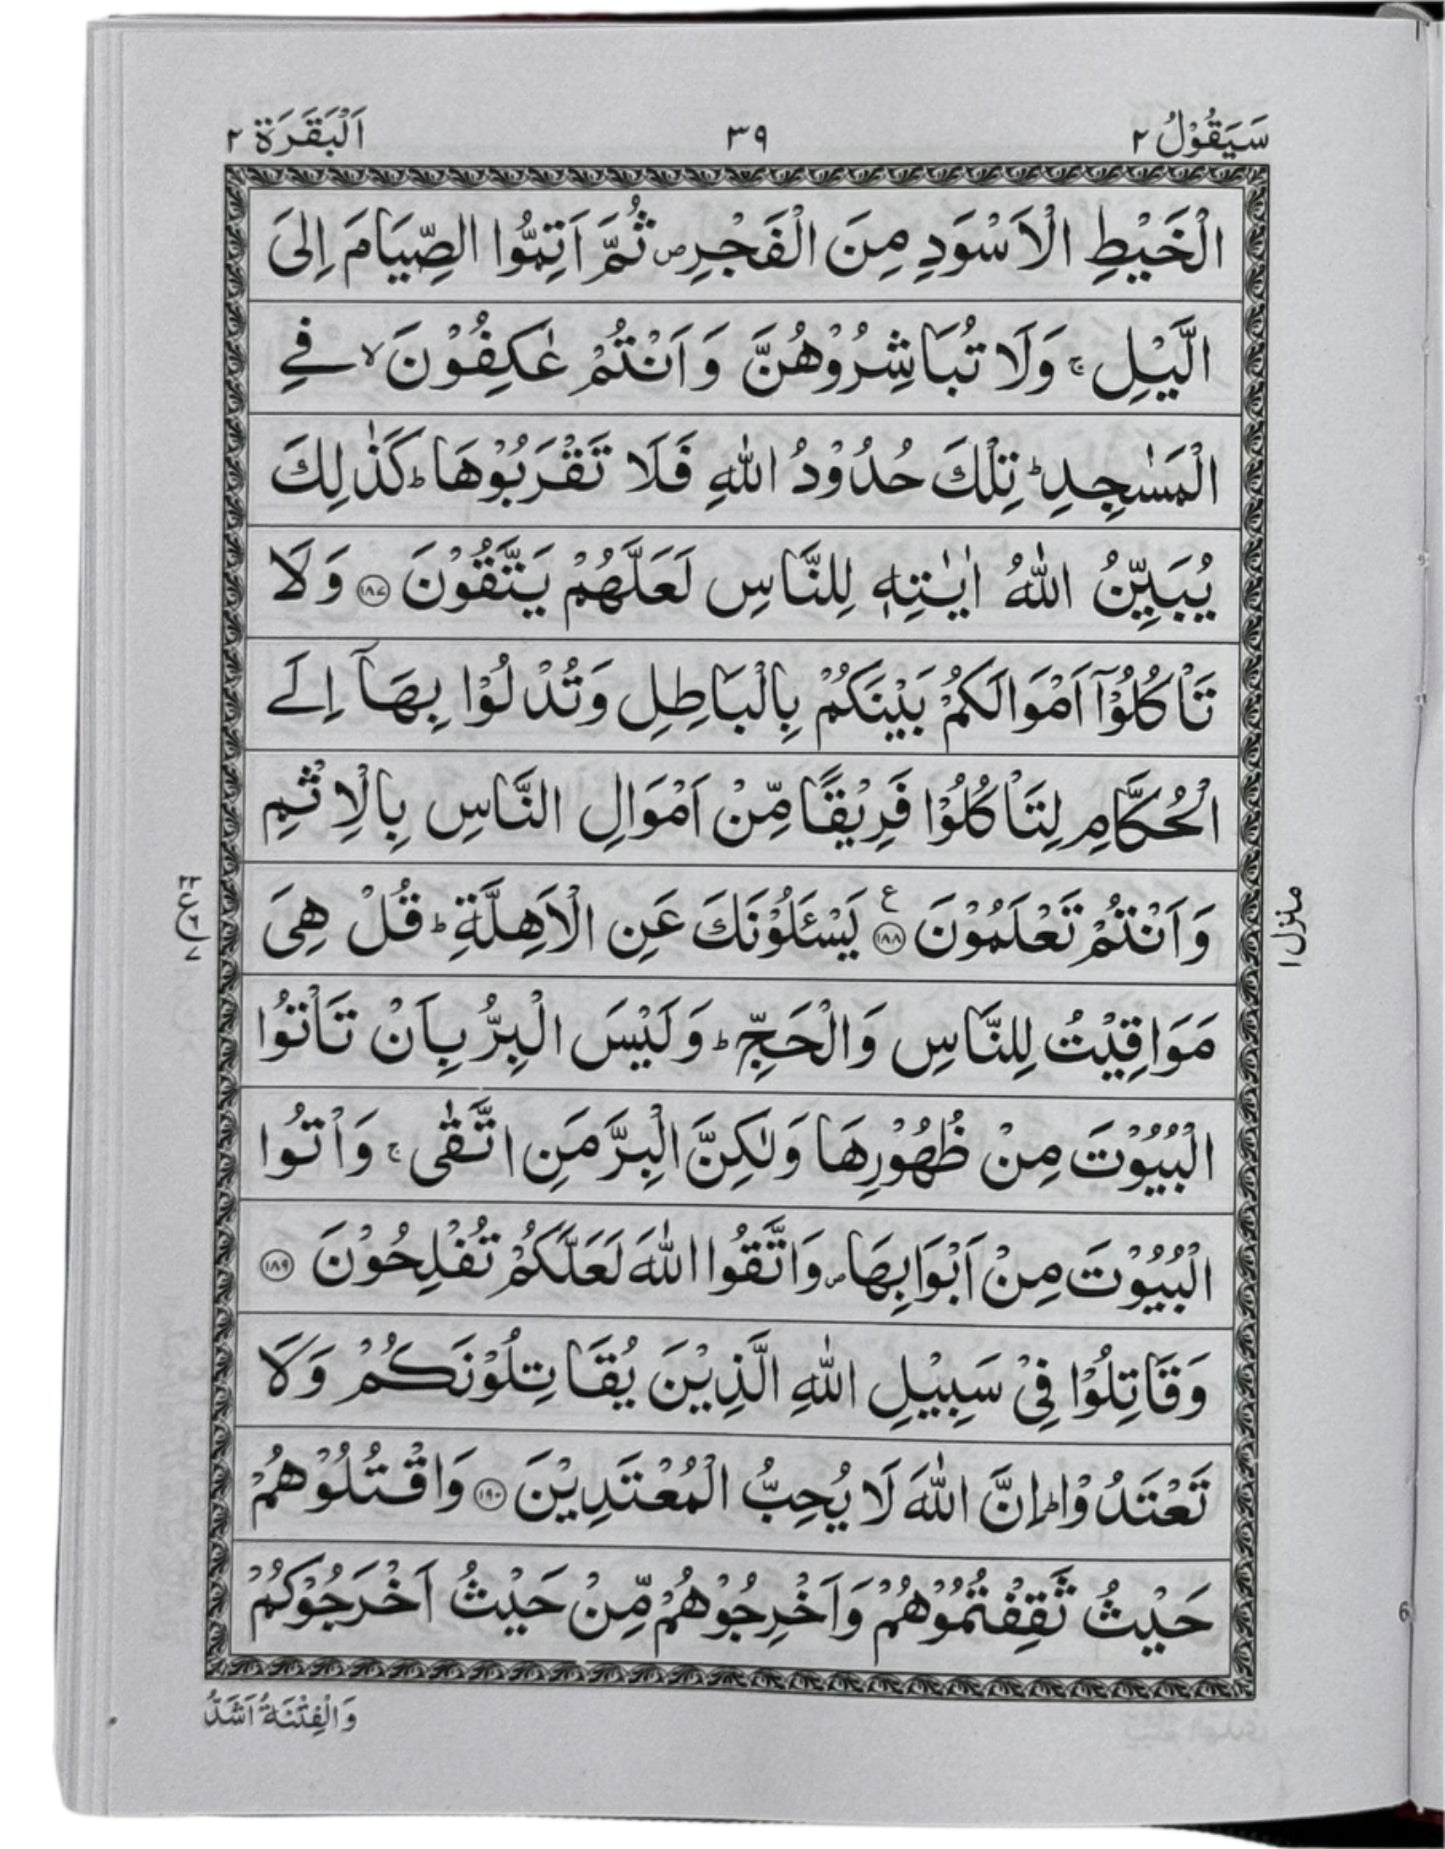 سَيَقُوْلُ ٢
٣٩
اَلْبَقَرَة ٢
الْخَيْطِ الْاَسْوَدِ مِنَ الْفَجْرِ ص ثُمَّ اَتِمُّوا الصِّيَامَ اِلَى
الَّيْلِ ج وَلَا تُبَاشِرُوْهُنَّ وَاَنْتُمْ عٰكِفُوْنَ لا فِي
الْمَسٰجِدِ ط تِلْكَ حُدُوْدُ اللّٰهِ فَلَا تَقْرَبُوْهَا ط كَذٰلِكَ
يُبَيِّنُ اللّٰهُ اٰيٰتِهٖ لِلنَّاسِ لَعَلَّهُمْ يَتَّقُوْنَ ١٨٧ وَلَا
تَاْكُلُوْٓا اَمْوَالَكُمْ بَيْنَكُمْ بِالْبَاطِلِ وَتُدْلُوْا بِهَآ اِلَى
الْحُكَّامِ لِتَاْكُلُوْا فَرِيْقًا مِّنْ اَمْوَالِ النَّاسِ بِالْاِثْمِ
وَاَنْتُمْ تَعْلَمُوْنَ ١٨٨ ع يَسْئَلُوْنَكَ عَنِ الْاَهِلَّةِ ط قُلْ هِيَ
مَوَاقِيْتُ لِلنَّاسِ وَالْحَجِّ ط وَلَيْسَ الْبِرُّ بِاَنْ تَاْتُوا
الْبُيُوْتَ مِنْ ظُهُوْرِهَا وَلٰكِنَّ الْبِرَّ مَنِ اتَّقٰى ج وَاْتُوا
الْبُيُوْتَ مِنْ اَبْوَابِهَا ص وَاتَّقُوا اللّٰهَ لَعَلَّكُمْ تُفْلِحُوْنَ ١٨٩
وَقَاتِلُوْا فِيْ سَبِيْلِ اللّٰهِ الَّذِيْنَ يُقَاتِلُوْنَكُمْ وَلَا
تَعْتَدُوْا ط اِنَّ اللّٰهَ لَا يُحِبُّ الْمُعْتَدِيْنَ ١٩٠ وَاقْتُلُوْهُمْ
حَيْثُ ثَقِفْتُمُوْهُمْ وَاَخْرِجُوْهُمْ مِّنْ حَيْثُ اَخْرَجُوْكُمْ
وَالْفِتْنَةُ اَشَدُّ
منزل ١
٢٣
ع
٧